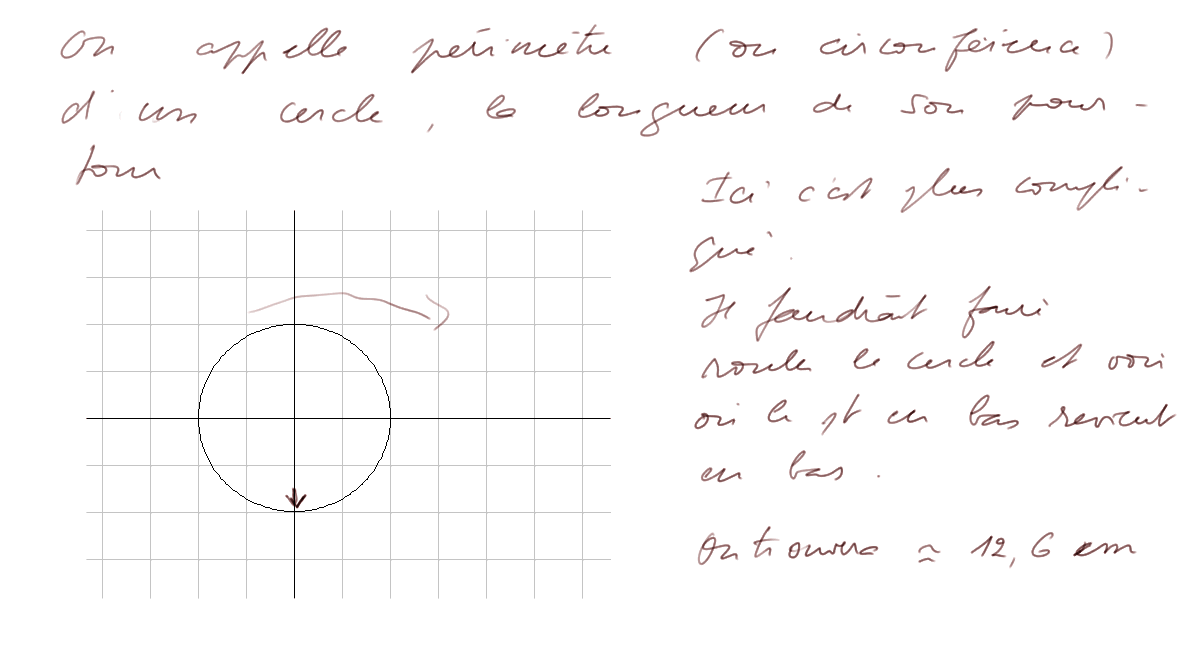 On appelle périmètre (ou circonférence)
d'un cercle, la longueur de son pour-
tour
Ici c'est plus compli-
qué.
Il faudrait faire
rouler le cercle et voir
où le pt en bas revient
en bas.
On trouvera ≈ 12,6 cm